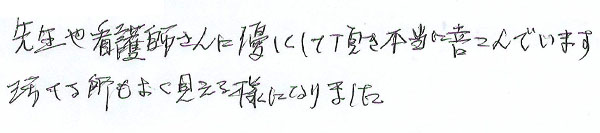 先生や看護師さんに優しくして頂き本当に喜こんでいます
る所もよく見える様になりました